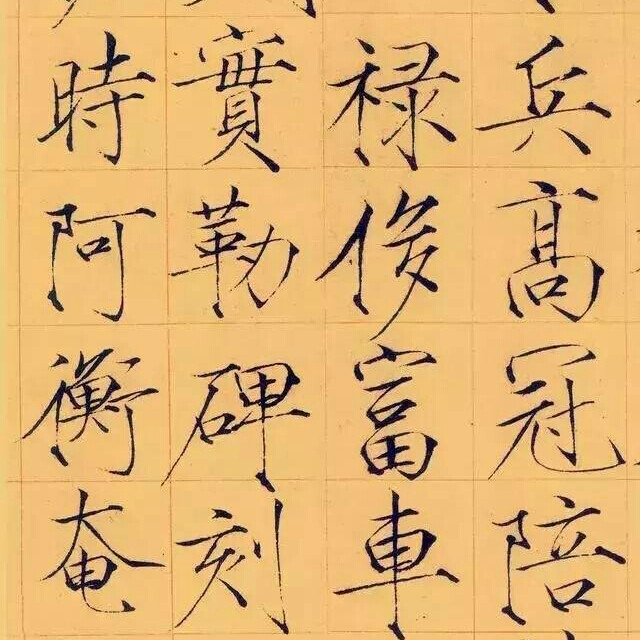 兵高冠陪
禄俊富車
實勒碑刻
時阿衡奄